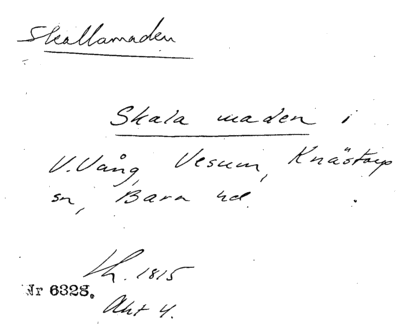 Skallamaden
Skala maden i
V. Vång, Vesum, Knästorp
sn, Bara hd.
Lh. 1815
Nr 6328.
Akt 4.